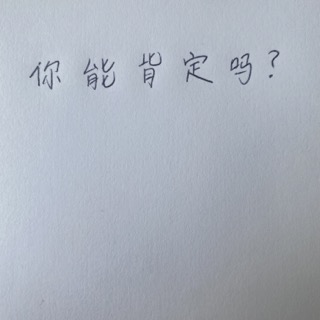 你能肯定吗?